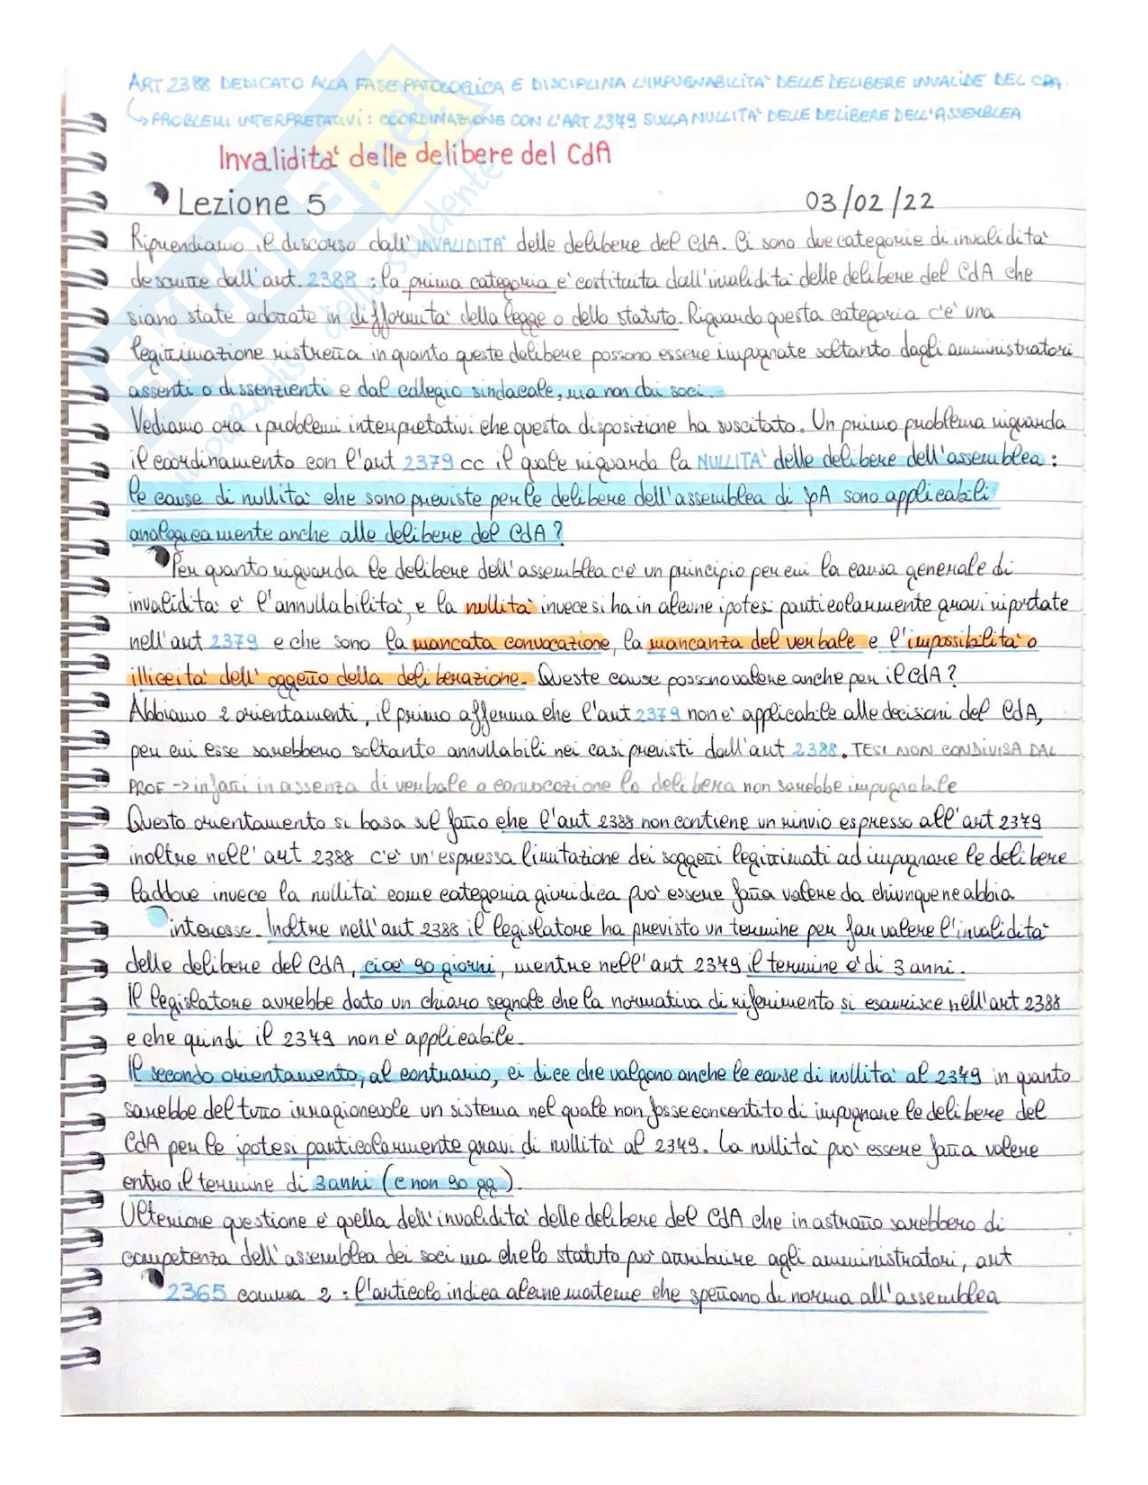 ART 2388 DEDICATO ALLA FASE PATOLOGICA E DISCIPLINA L'IMPUGNABILITA' DELLE DELIBERE INVALIDE DEL CDA.
↳ PROBLEMI INTERPRETATIVI: COORDINAZIONE CON L'ART 2379 SULLA NULLITA' DELLE DELIBERE DELL'ASSEMBLEA
Invalidità delle delibere del CdA
Lezione 5 03/02/22
Riprendiamo il discorso dall'INVALIDITA' delle delibere del CdA. Ci sono due categorie di invalidità
descritte dall'art. 2388: la prima categoria è costituita dall'invalidità delle delibere del CdA che
siano state adottate in difformità della legge o dello statuto. Riguardo questa categoria c'è una
legittimazione ristretta in quanto queste delibere possono essere impugnate soltanto dagli amministratori
assenti o dissenzienti e dal collegio sindacale, ma non dai soci.
Vediamo ora i problemi interpretativi che questa disposizione ha suscitato. Un primo problema riguarda
il coordinamento con l'art 2379 cc il quale riguarda la NULLITA' delle delibere dell'assemblea:
le cause di nullità che sono previste per le delibere dell'assemblea di SpA sono applicabili
analogicamente anche alle delibere del CdA?
Per quanto riguarda le delibere dell'assemblea c'è un principio per cui la causa generale di
invalidità è l'annullabilità, e la nullità invece si ha in alcune ipotesi particolarmente gravi riportate
nell'art 2379 e che sono la mancata convocazione, la mancanza del verbale e l'impossibilità o
illiceità dell'oggetto della deliberazione. Queste cause possono valere anche per il CdA?
Abbiamo 2 orientamenti, il primo afferma che l'art 2379 non è applicabile alle decisioni del CdA,
per cui esse sarebbero soltanto annullabili nei casi previsti dall'art 2388. TESI NON CONDIVISA DAL
PROF -> infatti in assenza di verbale o convocazione la delibera non sarebbe impugnabile
Questo orientamento si basa sul fatto che l'art 2388 non contiene un rinvio espresso all'art 2379
inoltre nell'art 2388 c'è un'espressa limitazione dei soggetti legittimati ad impugnare le delibere
laddove invece la nullità come categoria giuridica può essere fatta valere da chiunque ne abbia
interesse. Inoltre nell'art 2388 il legislatore ha previsto un termine per far valere l'invalidità
delle delibere del CdA, cioè 90 giorni, mentre nell'art 2379 il termine è di 3 anni.
Il legislatore avrebbe dato un chiaro segnale che la normativa di riferimento si esaurisce nell'art 2388
e che quindi il 2379 non è applicabile.
Il secondo orientamento, al contrario, ci dice che valgono anche le cause di nullità al 2379 in quanto
sarebbe del tutto irragionevole un sistema nel quale non fosse concentito di impugnare le delibere del
CdA per le ipotesi particolarmente gravi di nullità al 2379. La nullità può essere fatta valere
entro il termine di 3 anni (e non 90 gg).
Ulteriore questione è quella dell'invalidità delle delibere del CdA che in astratto sarebbero di
competenza dell'assemblea dei soci ma che lo statuto può attribuire agli amministratori, art
2365 comma 2: l'articolo indica alcune materie che spettano di norma all'assemblea